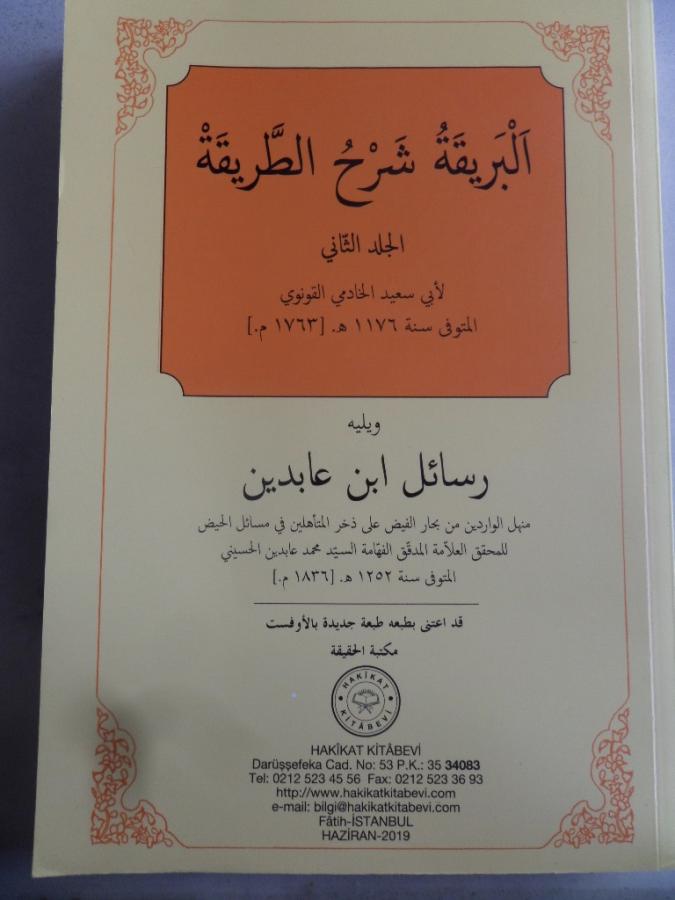 اَلْبَرِيقَةُ شَرْحُ الطَّرِيقَةْ
الجلد الثّاني
لأبي سعيد الخادمي القونوي
المتوفى سنة ١١٧٦ هـ. [١٧٦٣ م.]
ويليه
رسائل ابن عابدين
منهل الواردين من بحار الفيض على ذخر المتأهلين في مسائل الحيض
للمحقق العلاّمة المدقّق الفهّامة السيّد محمد عابدين الحسيني
المتوفى سنة ١٢٥٢ هـ. [١٨٣٦ م.]
قد اعتنى بطبعه طبعة جديدة بالأوفست
مكتبة الحقيقة
HAKİKAT KİTÂBEVİ
HAKÎKAT KİTÂBEVİ
Darüşşefeka Cad. No: 53 P.K.: 35 34083
Tel: 0212 523 45 56 Fax: 0212 523 36 93
http://www.hakikatkitabevi.com
e-mail: bilgi@hakikatkitabevi.com
Fâtih-İSTANBUL
HAZİRAN-2019